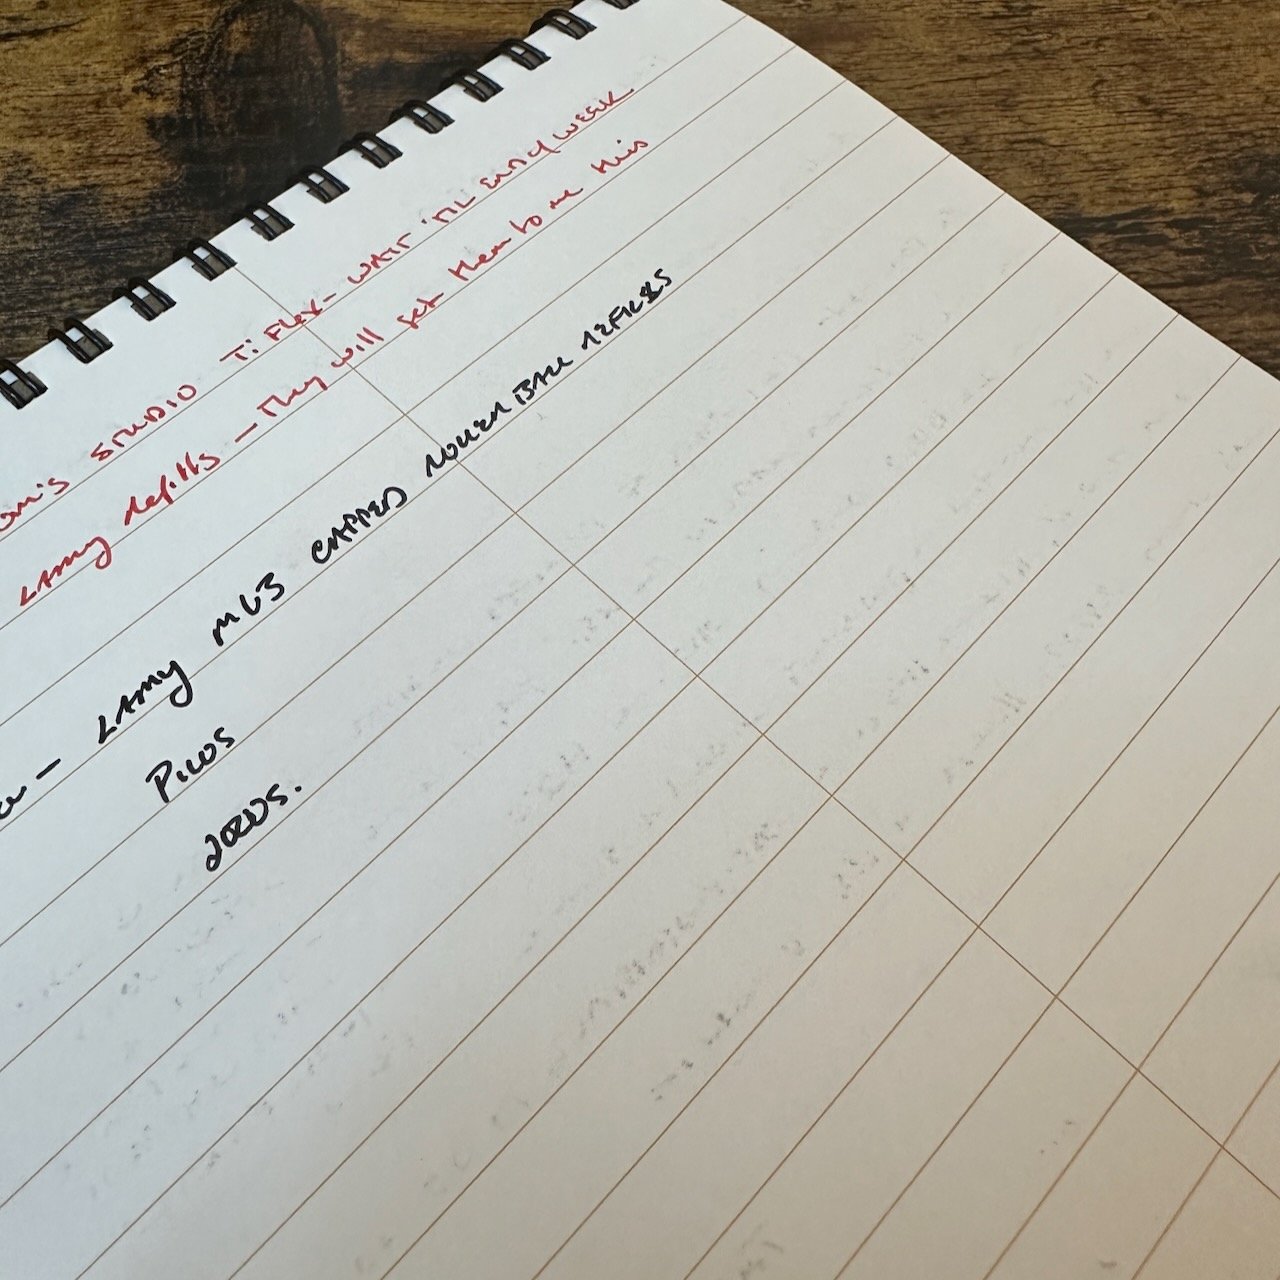 STUDIO Ti Flex - WAIT 'TIL END OF WEEK
LAMY refills - They will get them to me this
- LAMY M63 CAPPED ROLLER BALL REFILLS
PLUS